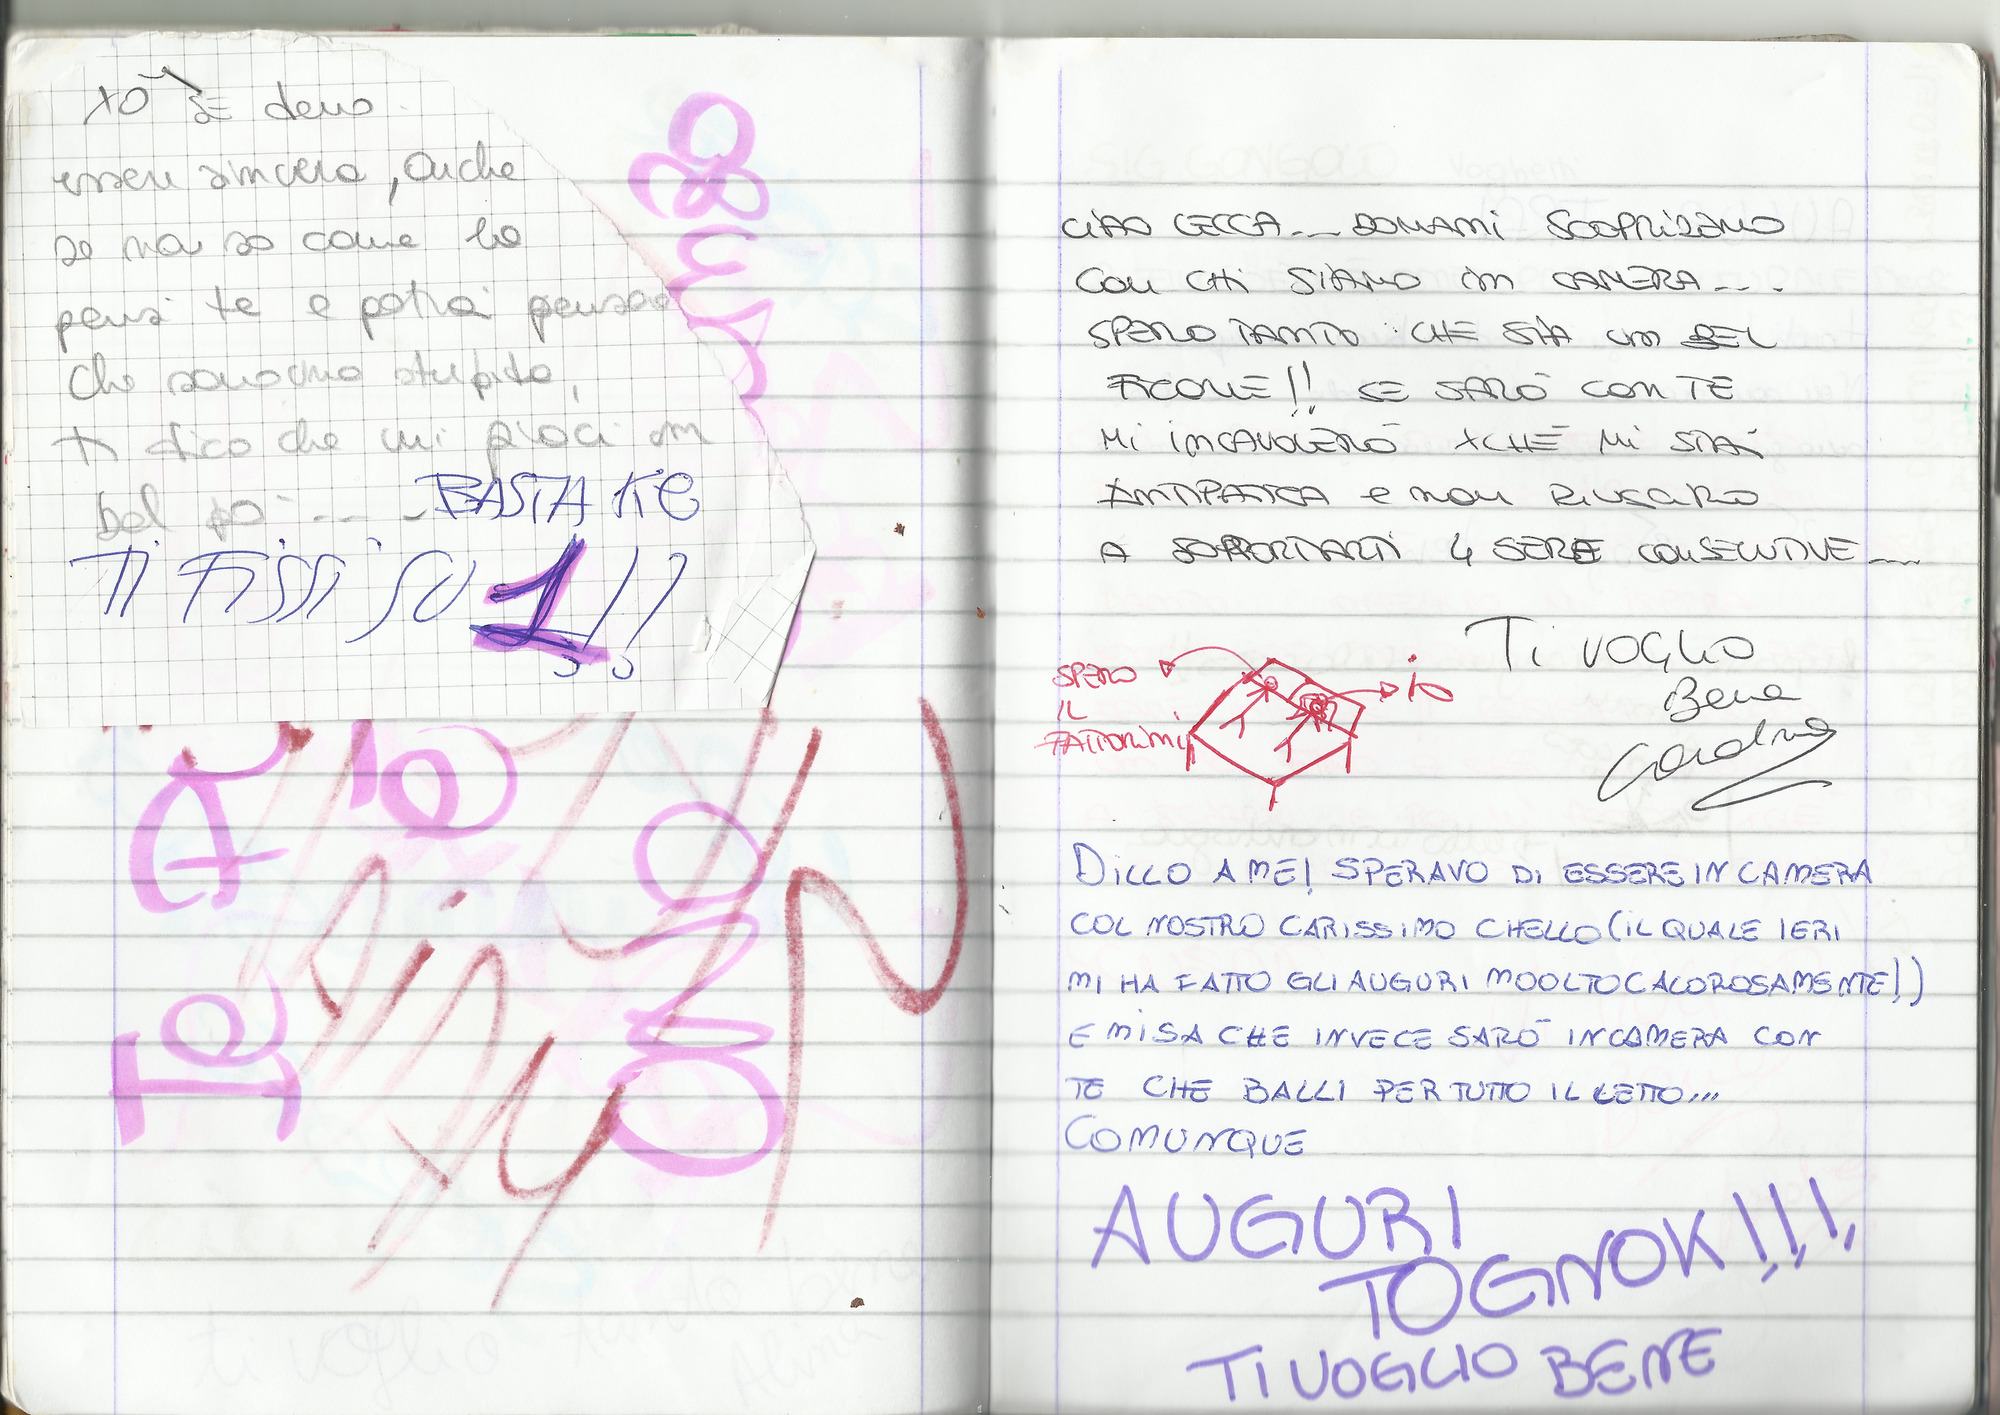 xò se devo
essere sincera, anche
se non so come la
pensi te e potrai pensare
che sono una stupida,
ti dico che mi piaci un
bel pò --- BASTA KE
TI FISSI SU 1!!
Te
CIAO CECCA... DOMANI SCOPRIREMO
CON CHI SIAMO IN CAMERA...
SPERO TANTO CHE SIA UN BEL
FICONE!! SE SARÒ CON TE
MI INCAVOLERÒ XCHÈ MI STAI
ANTIPATICA e non RIUSCIRÒ
A SOPPORTARTI 4 SERE CONSECUTIVE...
Ti VOGLIO
Bene
SPERO
IL
FATTORINI
io
DILLO A ME! SPERAVO DI ESSERE IN CAMERA
COL NOSTRO CARISSIMO CHELLO (IL QUALE IERI
MI HA FATTO GLI AUGURI MOOLTO CALOROSAMENTE!)
E MI SA CHE INVECE SARÒ IN CAMERA CON
TE CHE BALLI PER TUTTO IL LETTO...
COMUNQUE
AUGURI
TOGNOK!!!
TI VOGLIO BENE